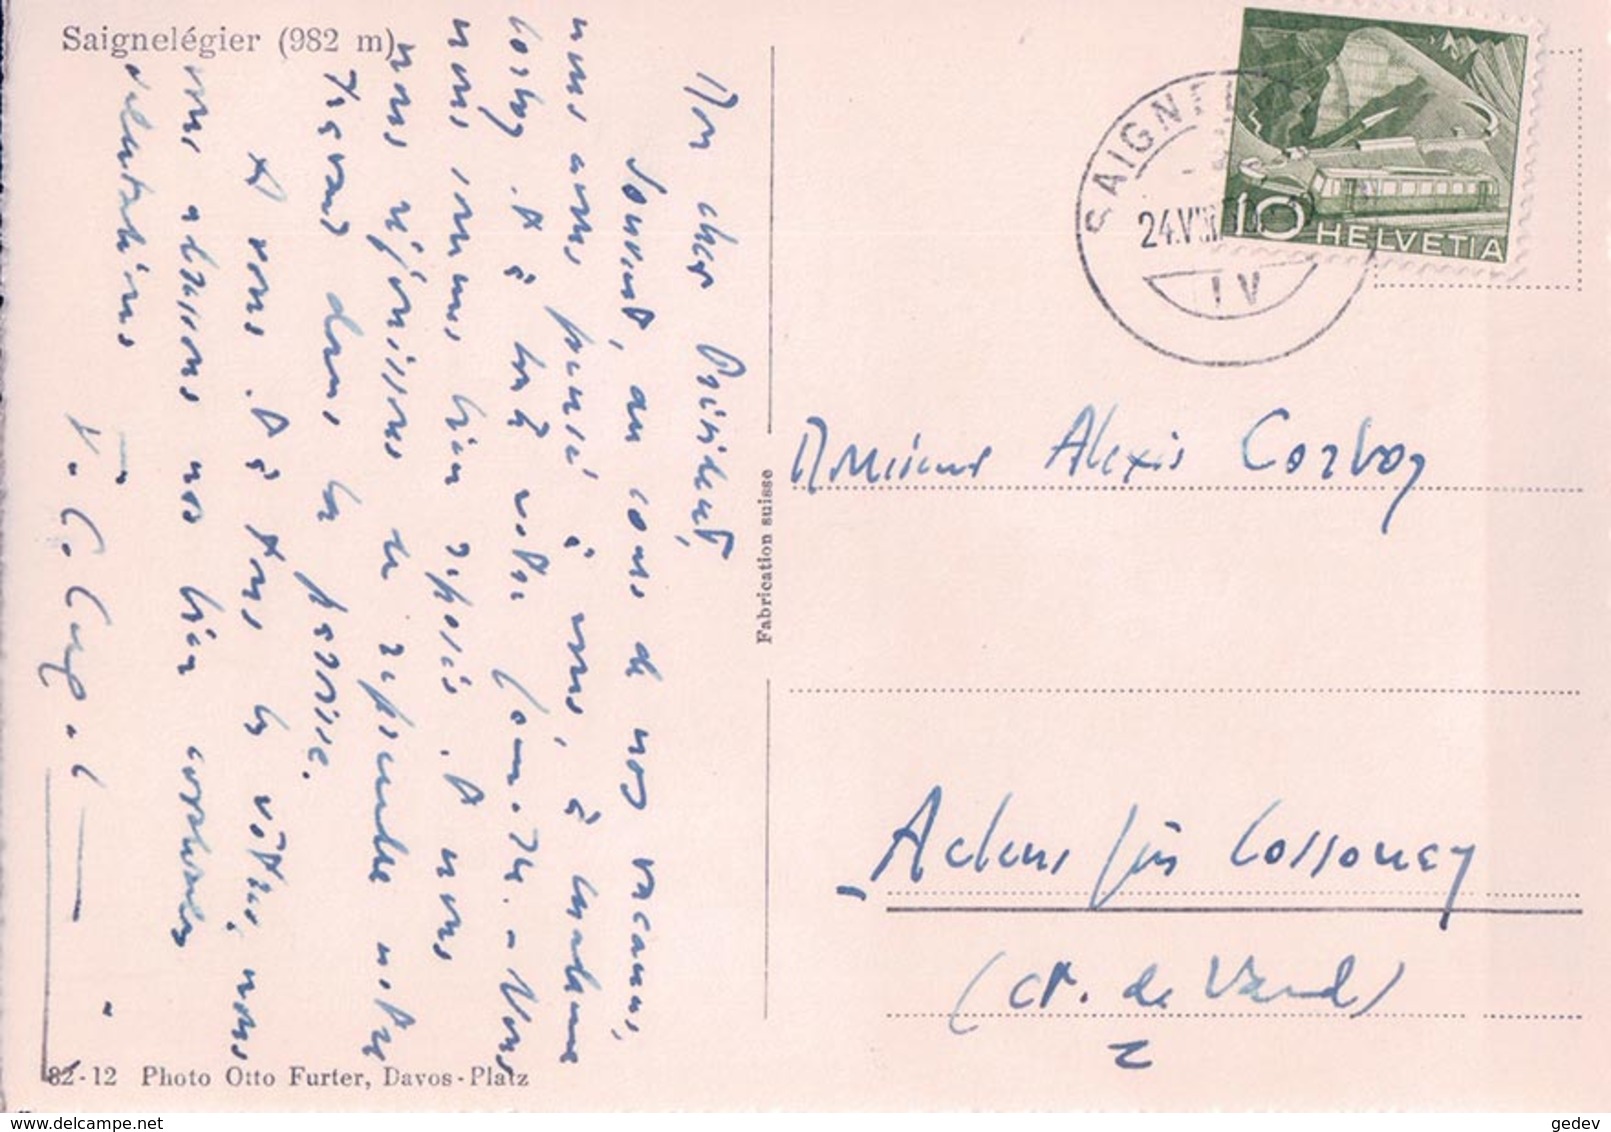 Saignelégier (982 m)
Mon cher Président,
Souvent, au cours de nos vacances,
nous avons pensé à vous, à Madame
Corboz et à toute votre famille. Nous
nous sommes bien reposés et nous
nous réjouissons de reprendre notre
travail dans la paroisse.
A vous et à tous les vôtres, nous
vous adressons nos bien cordiales
salutations
Fabrication suisse
10 HELVETIA
SAIGNE
24.VIII
Monsieur Alexis Corboz
Aclens s/Cossonay
(ct. de Vaud)
82-12 Photo Otto Furter, Davos-Platz
delcampe.net
gedev